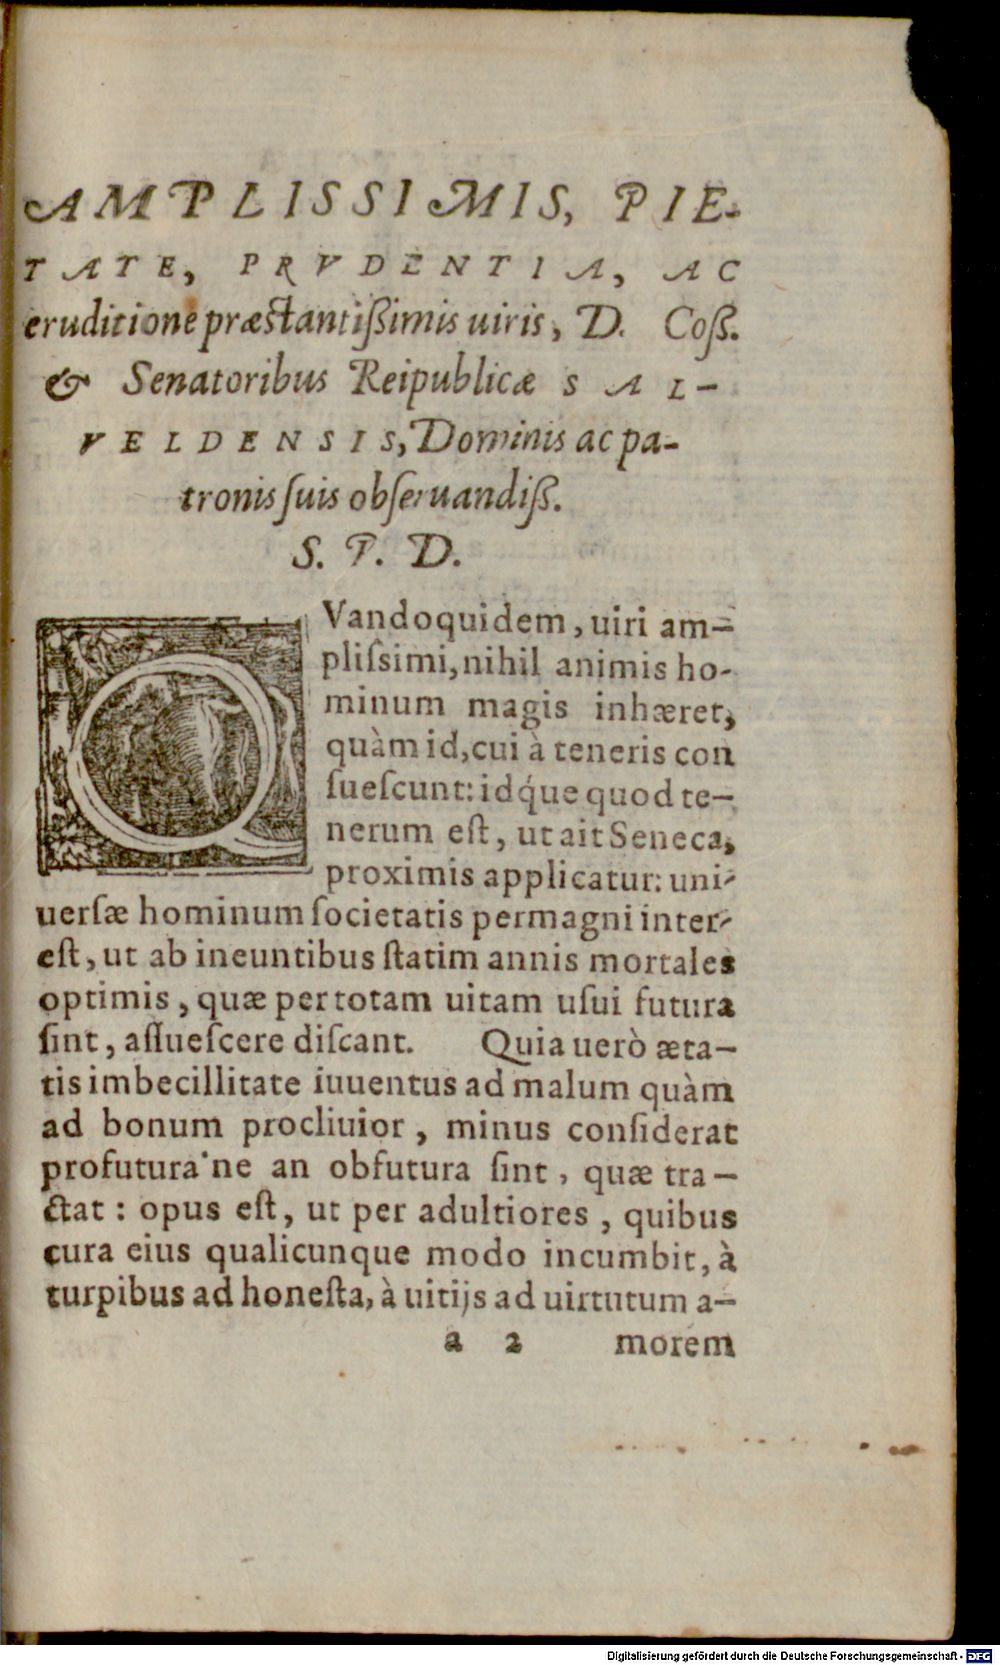 AMPLISSIMIS, PIE-
TATE, PRVDENTIA, AC
eruditione præstantißimis uiris, D. Coß.
& Senatoribus Reipublicæ SAL-
VELDENSIS, Dominis ac pa-
tronis ſuis obſeruandiß.
S. P. D.
QVandoquidem, uiri am-
pliſsimi, nihil animis ho-
minum magis inhæret,
quàm id, cui à teneris con
ſueſcunt: idq́ue quod te-
nerum eſt, ut ait Seneca,
proximis applicatur: uni-
uerſæ hominum ſocietatis permagni inter-
eſt, ut ab ineuntibus ſtatim annis mortales
optimis, quæ per totam uitam uſui futura
ſint, aſſueſcere diſcant. Quia uerò æta-
tis imbecillitate iuuentus ad malum quàm
ad bonum procliuior, minus conſiderat
profutura'ne an obfutura ſint, quæ tra-
ctat: opus eſt, ut per adultiores, quibus
cura eius qualicunque modo incumbit, à
turpibus ad honeſta, à uitijs ad uirtutum a-
a 2 morem
Digitalisierung gefördert durch die Deutsche Forschungsgemeinschaft - DFG